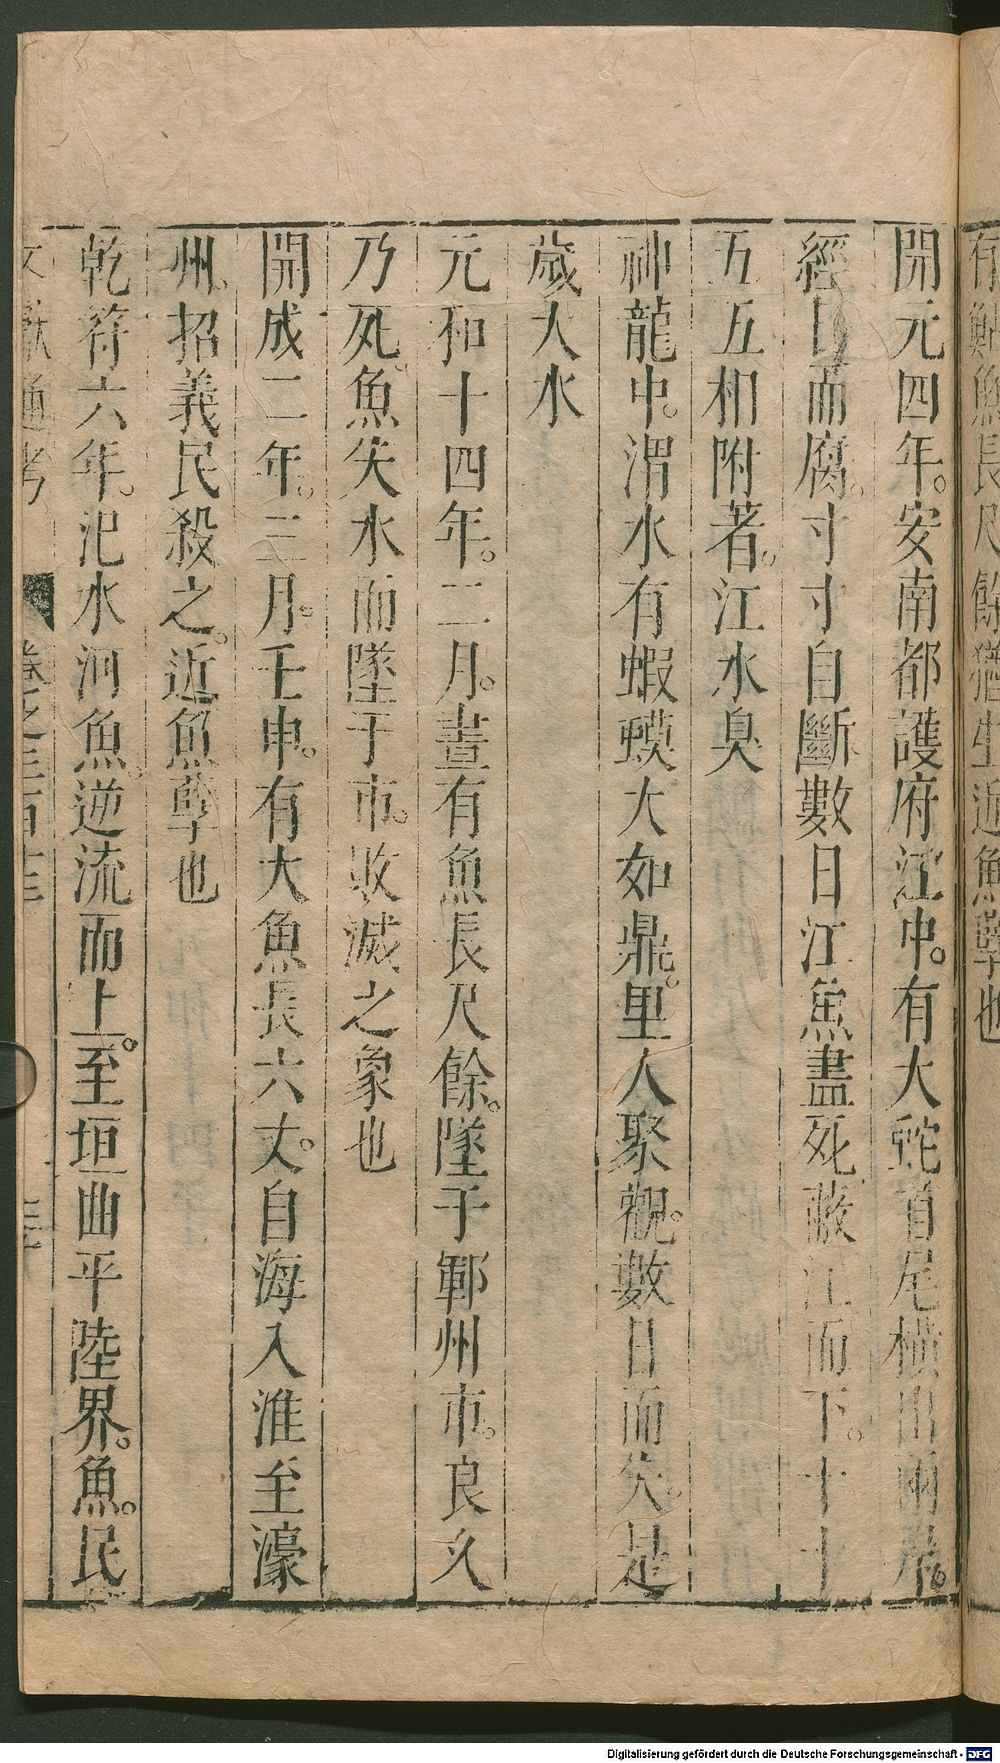 有鮎魚長尺餘猶生近魚孽也
開元四年。安南都護府江中。有大蛇首尾橫出兩岸。
經日而腐。寸寸自斷數日江魚盡死蔽江而下。十十
五五相附著。江水臭
神龍中。渭水有蝦蟆大如鼎。里人聚觀。數日而失。是
歲大水
元和十四年。二月。晝有魚長尺餘。墜于鄆州市。良久
乃死。魚失水而墜于市。敗滅之象也
開成二年。三月。壬申。有大魚長六丈。自海入淮至濠
州。招義民殺之。近魚孽也
乾符六年。汜水河魚。逆流而上。至垣曲平陸界。魚。民
文獻通考 卷之三百
Digitalisierung gefördert durch die Deutsche Forschungsgemeinschaft - DFG